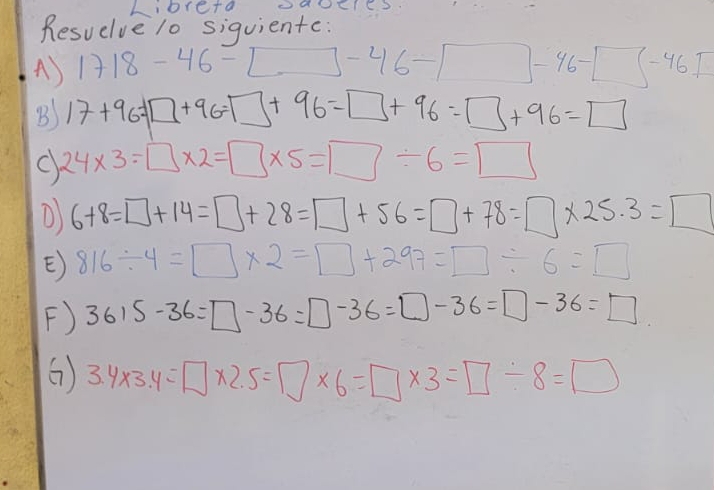 Libreta Saberes.
Resuelve lo siguiente:
A) 1718 - 46 - □ - 46 - □ - 46 - □ - 46 □
B) 17 + 96 = □ + 96 = □ + 96 = □ + 96 = □ + 96 = □
C) 24 x 3 = □ x 2 = □ x 5 = □ ÷ 6 = □
D) 6 + 8 = □ + 14 = □ + 28 = □ + 56 = □ + 78 = □ x 25.3 = □
E) 816 ÷ 4 = □ x 2 = □ + 297 = □ ÷ 6 = □
F) 3615 - 36 = □ - 36 = □ - 36 = □ - 36 = □ - 36 = □
G) 3.4 x 3.4 = □ x 2.5 = □ x 6 = □ x 3 = □ ÷ 8 = □